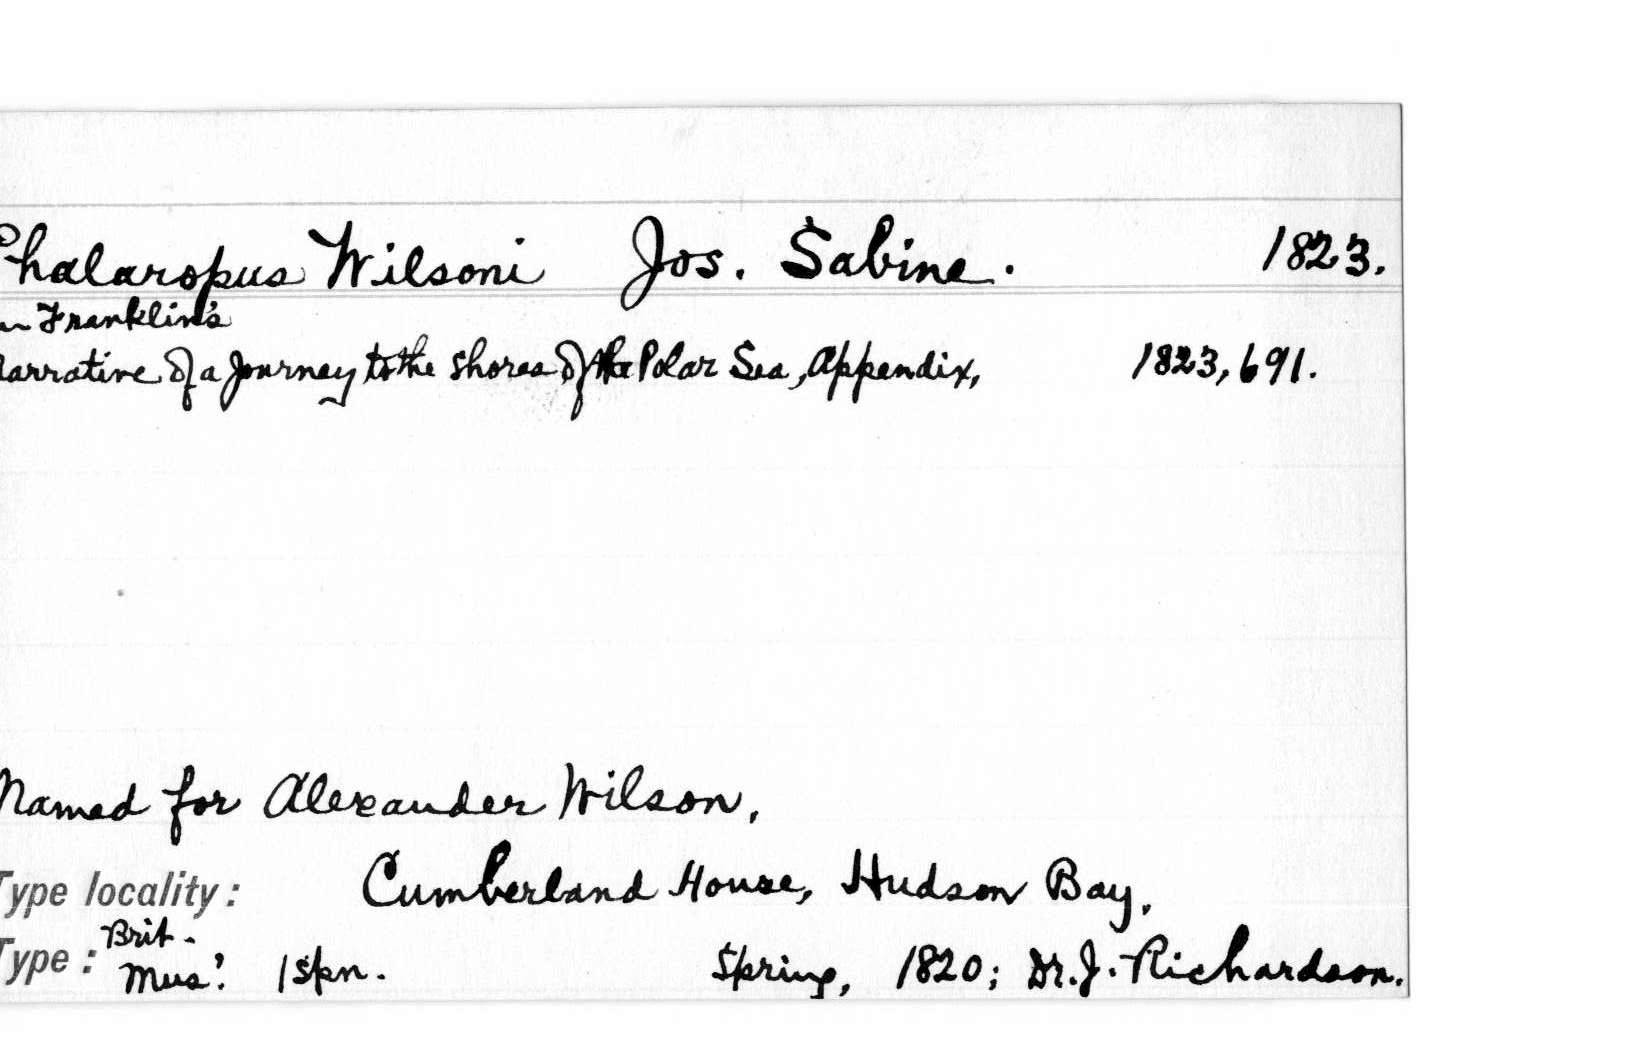 Phalaropus Wilsoni Jos. Sabine. 1823.
in Franklin's
Narrative of a Journey to the shores of the Polar Sea, Appendix, 1823, 691.
Named for Alexander Wilson,
Type locality: Cumberland House, Hudson Bay.
Type: Brit. Mus? 1 spn. Spring, 1820; Dr. J. Richardson.